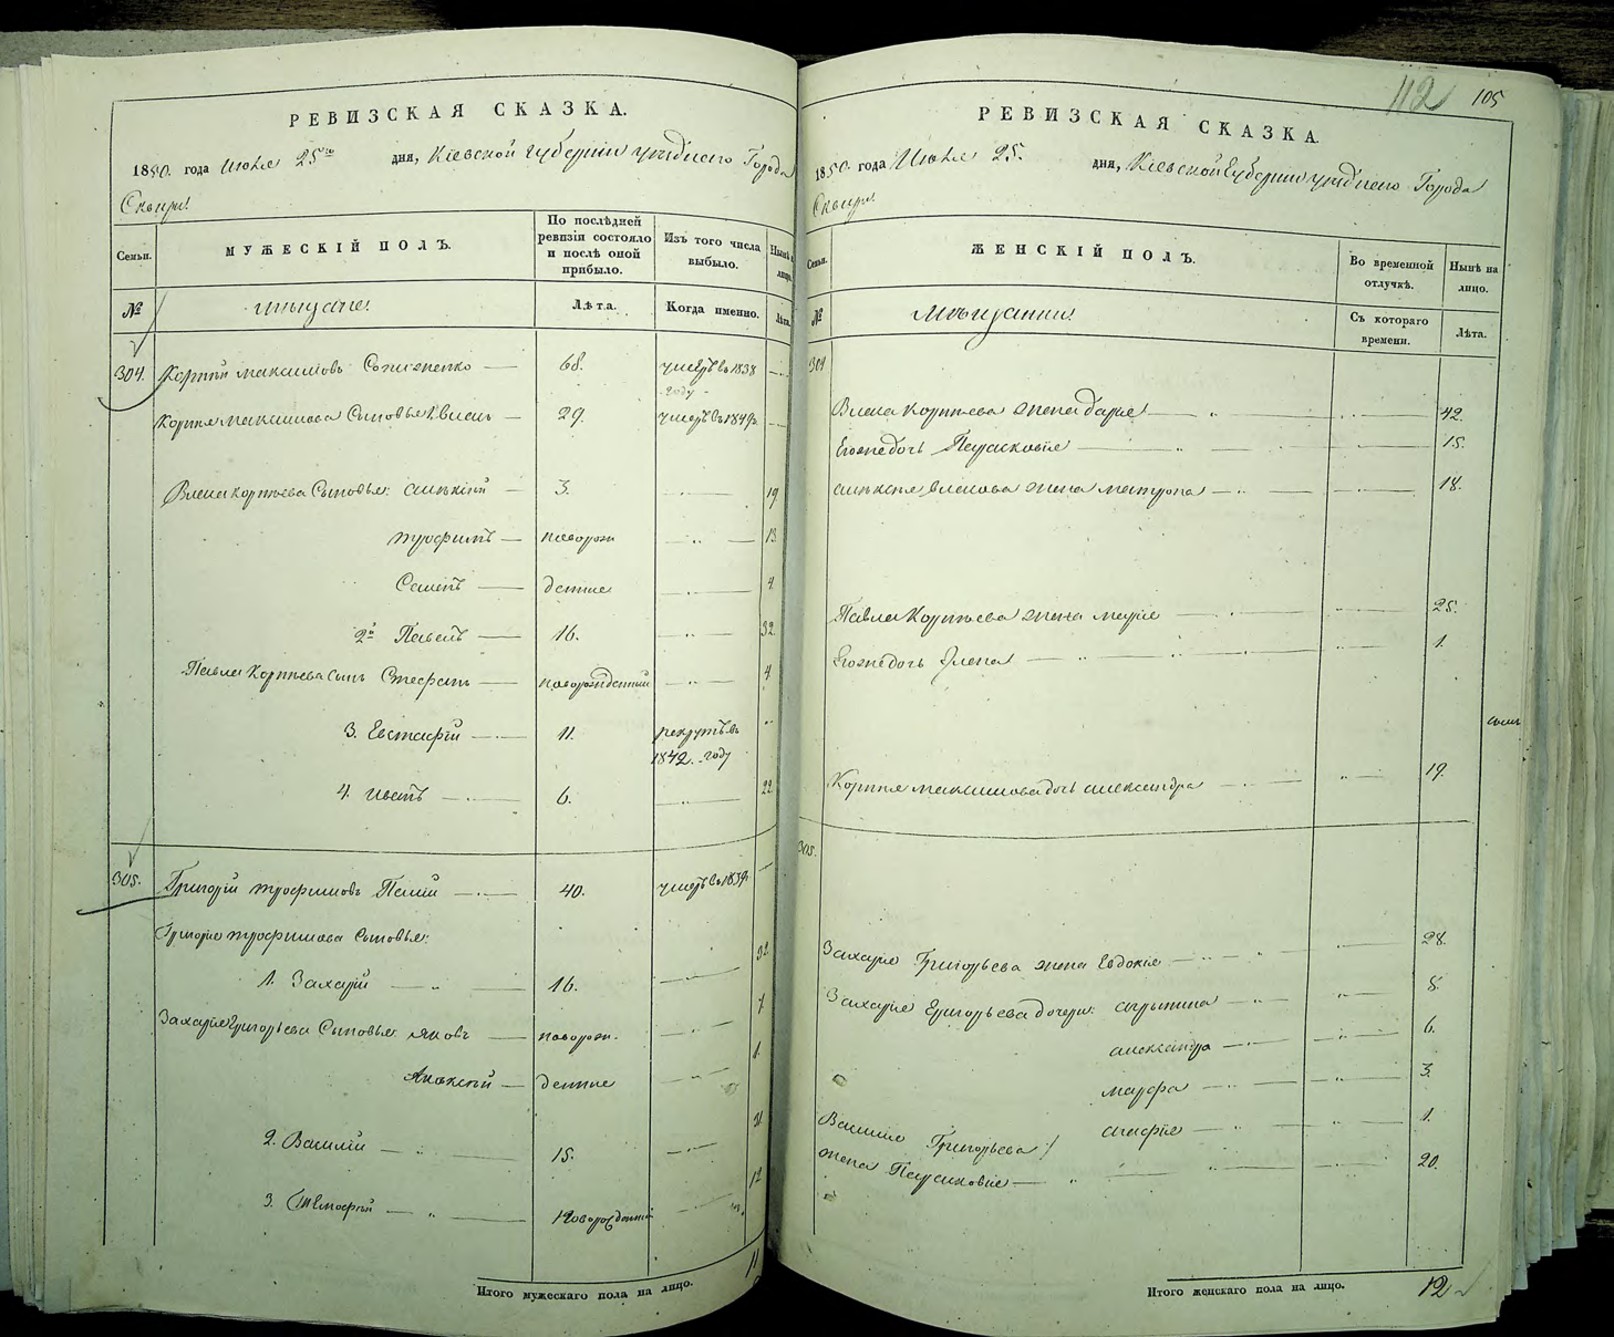 РЕВИЗСКАЯ СКАЗКА.
1850. года Июля 25го дня, Кіевской Губерніи уѣзднаго Города
Сквиры
Семьи. МУЖЕСКІЙ ПОЛЪ. По послѣдней ревизіи состояло и послѣ оной прибыло. Изъ того числа выбыло. Нынѣ на лицо.
№ мѣщане Лѣта. Когда именно. Лѣта.
304. Корній Максимовъ 68. умеръ въ 1838 году
Корнія Максимова Сыновья 1. Власъ 29. умеръ въ 1849г.
Власа Корнѣева Сыновья: Алексѣй 3. 19
Трофимъ новорож 13
Семенъ 4
2й Павелъ 16. 32
Павла Корнѣева Сынъ Стефанъ новорожденный 4
3. Евстафій 11. рекрутъ въ
1842. году
4. Иванъ 6. 22
305. Григорій Трофимовъ 40. умеръ въ 1839г.
Григорія Трофимова Сыновья:
1. Захарій 16. 32
Захарія Григорьева Сыновья: Яковъ новорож. 7
1
2. Василій 15.
3. Тимофей Новорожденный 12
Итого мужескаго пола на лицо. 11
112 105
РЕВИЗСКАЯ СКАЗКА.
1850. года Июля 25. дня, Кіевской Губерніи уѣзднаго Города
Сквиры
Семьи. ЖЕНСКІЙ ПОЛЪ. Во временной отлучкѣ. Нынѣ на лицо.
№ Мѣщанки Съ котораго времени. Лѣта.
304
Власа Корнѣева жена Дарья 42.
Егоже дочь Парасковія 15.
Алексѣя Власова жена Матрона 18.
Павла Корнѣева жена Марія 25.
Егоже дочь Елена 1.
Корнія Максимова дочь Александра 19.
305.
Захарія Григорьева жена Евдокія 28.
Захарія Григорьева дочери: 8.
Александра 6.
Марфа 3.
Агафія 1.
Василія Григорьева
жена Парасковія 20.
Итого женскаго пола на лицо. 12